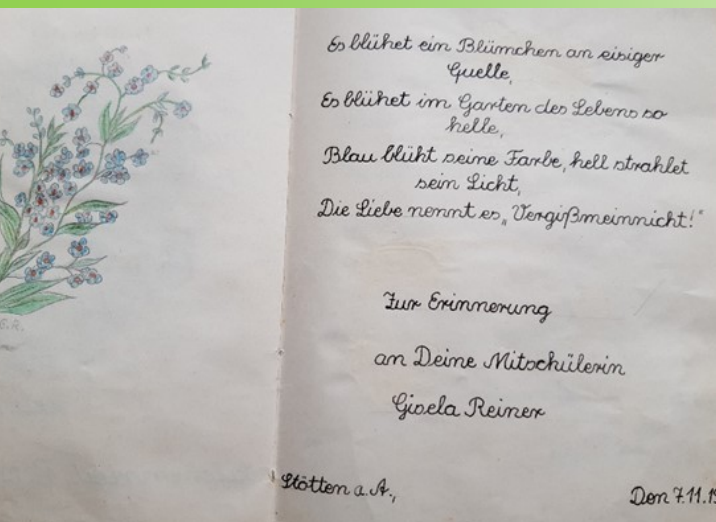 Es blühet ein Blümchen an eisiger
Quelle,
Es blühet im Garten des Lebens so
helle,
Blau blüht seine Farbe, hell strahlet
sein Licht,
Die Liebe nennt es „Vergißmeinnicht!"
Zur Erinnerung
an Deine Mitschülerin
Gisela Reiner
Stötten a. A.,
Den 7.11.19
E.R.